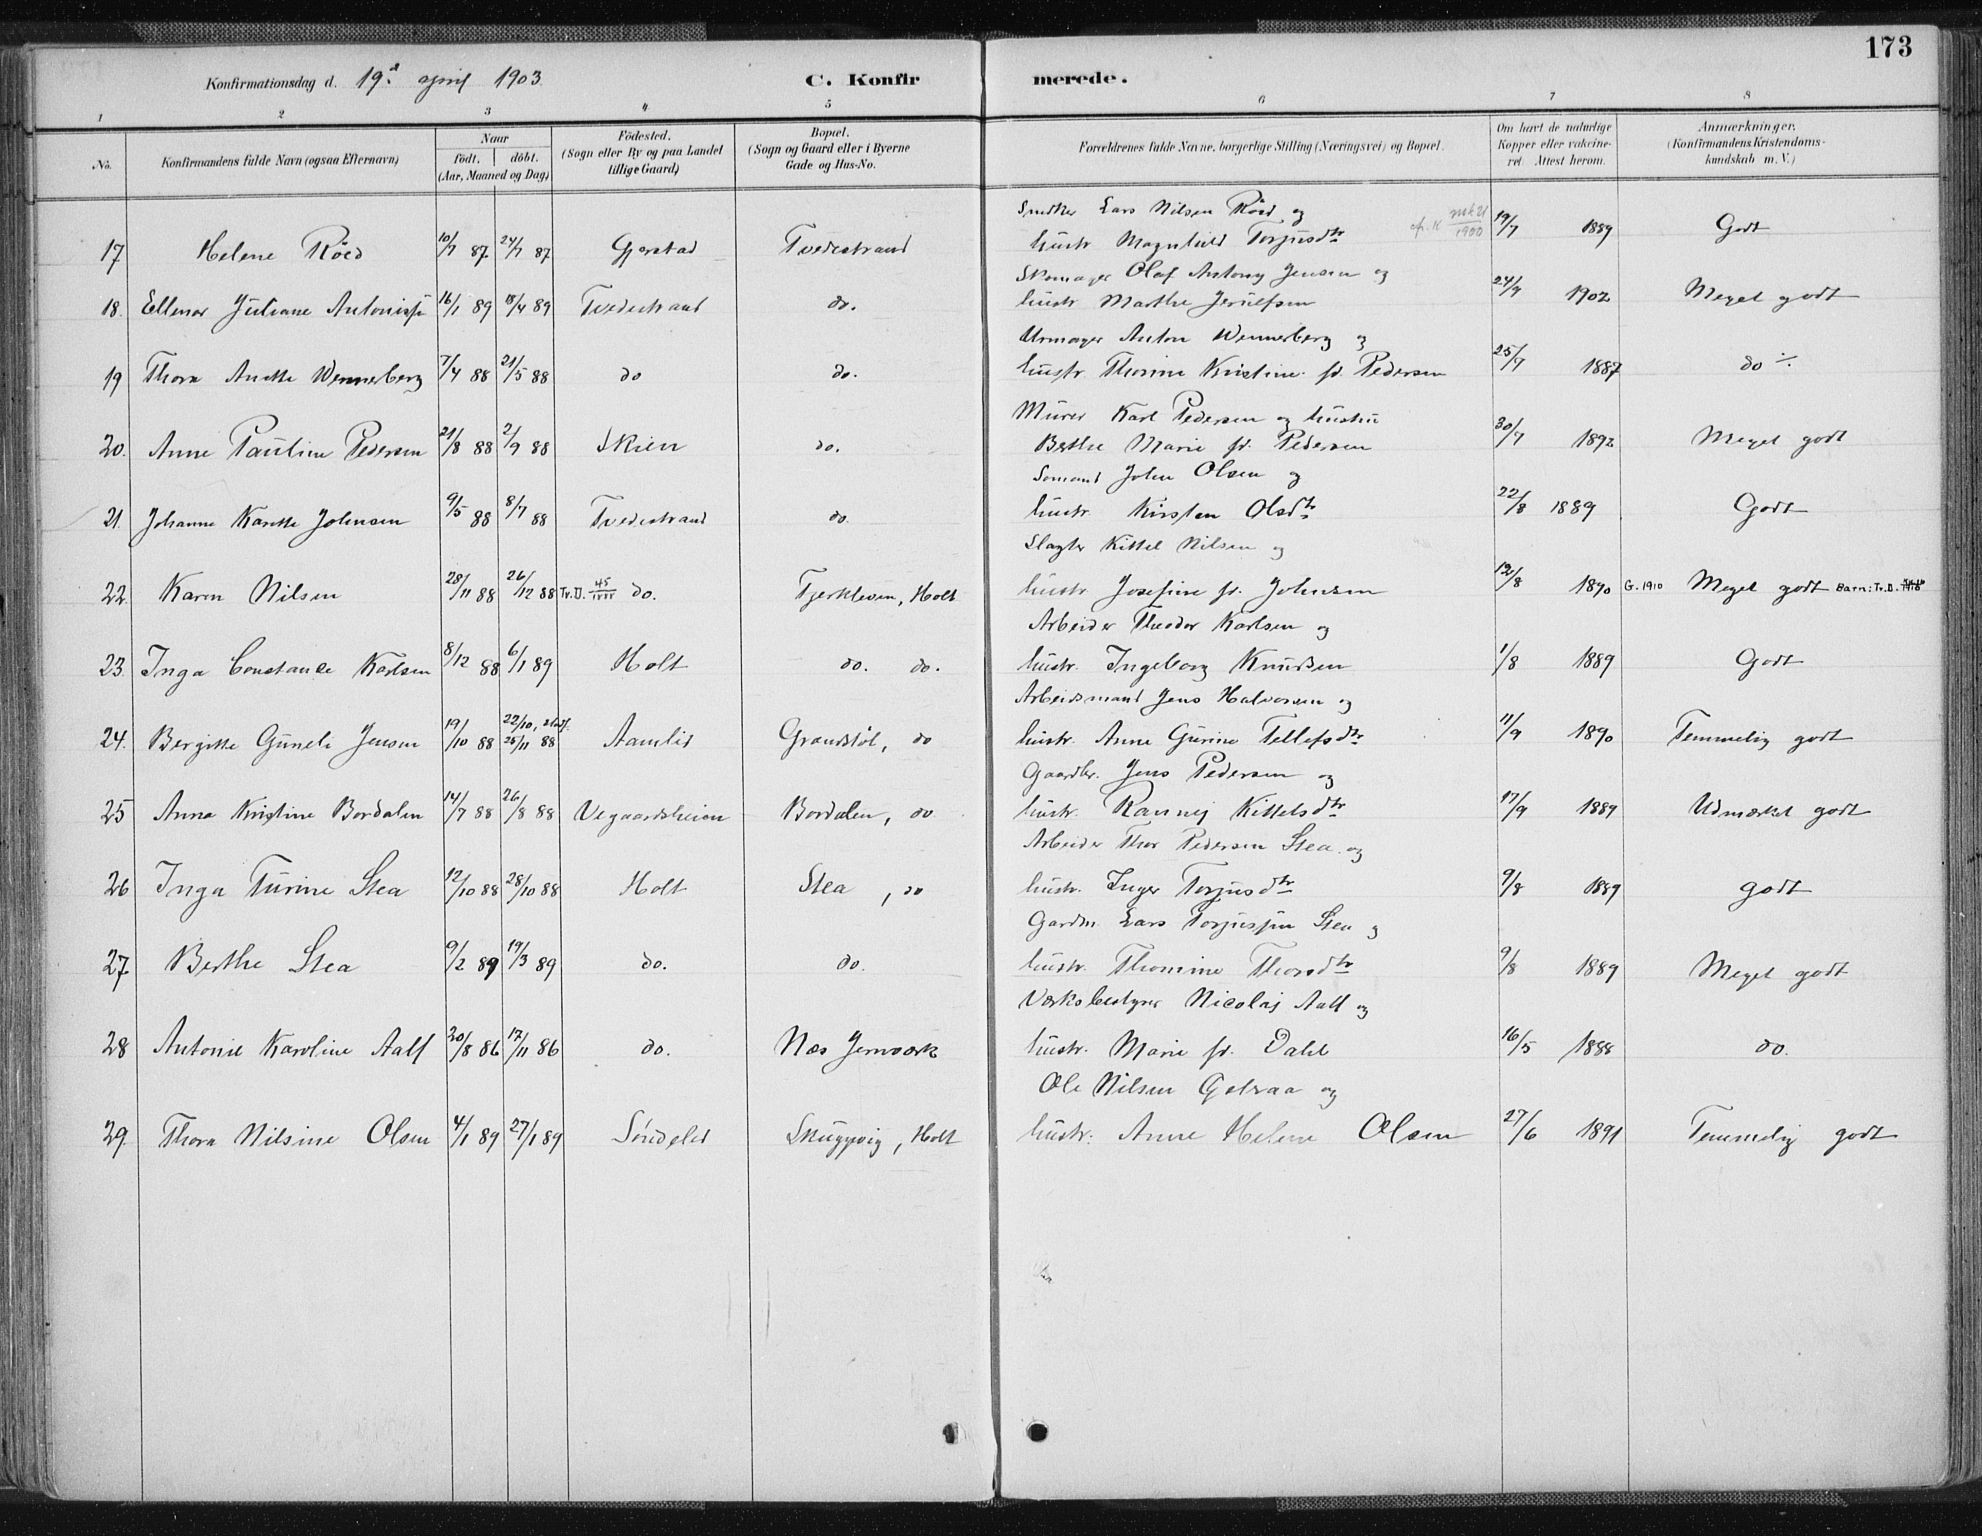 173
Konfirmationsdag d. 19. april 1903 C. Konfirmerede.
1 2 3 4 5 6 7 8
No. Konfirmandens fulde Navn (ogsaa Efternavn) Naar født. døbt. (Aar, Maaned og Dag) Fødested. (Sogn eller By og paa Landet tillige Gaard) Bopæl. (Sogn og Gaard eller i Byerne Gade og Hus-No. Forældrenes fulde Navne, borgerlige Stilling (Næringsvei) og Bopæl. Om havt de naturlige Kopper eller vakcineret. Attest herom. Anmærkninger. (Konfirmandens Kristendomskundskab m. V.)
Snedker Lars Nilsen Röed og
17 Helene Röed 10/7 87 24/7 87 Gjerstad Tvedestrand hustr. Magnhild Torjusdtr 1900 19/7 1889 Godt
Skomager Olaf Antony Jensen og
18. Ellenor Juliane Antonisfr 16/1 89 18/4 89 Tvedestrand do. hustr. Marthe Jerulfsen 24/4 1902 Meget godt
Urmager Anton Wennerberg og
19 Thora Anette Wennerberg 7/4 88 21/5 88 do do. hustr. Thorine Kristine f. Pedersen 25/7 1887 do ÷
Murer Karl Pedersen og hustru
20. Anne Pauline Pedersen 21/8 88 2/9 88 Skien do. Berthe Marie f. Pedersen 30/7 1892 Meget godt
Sømand John Olsen og
21. Johanne Karette Johnsen 9/5 88 8/7 88 Tvedestrand do. hustr. Kirsten Olsdtr 22/8 1889 Godt
Slagter Kittel Nilsen og
22. Karen Nilsen 28/11 88 26/12 88 Tv.D. 45/1888 do. Fjerkleven, Holt hustr. Josefine f. Johnsen 12/8 1890 G. 1910 Meget godt Barn: Tv.D.
Arbeider Theodor Karlsen og
23. Inga Constance Karlsen 8/12 88 6/1 89 Holt do. do. hustr. Ingeborg Knudsen 1/8 1889 Godt
Arbeidsmand Jens Halvorsen og
24. Bergitte Gunelie Jensen 19/10 88 22/10, stadf. 25/11 88 Aamlid Grandstöl, do hustr. Anne Gurine Tellefsdtr 11/9 1890 Temmelig godt
Gaardbr. Jens Pedersen og
25 Anna Kristine Bordalen 14/7 88 26/8 88 Vegaardsheien Bordalen, do hustr. Rannej Kittelsdtr 17/9 1889 Udmærket godt
Arbeider Thor Pedersen Stea og
26 Inga Turine Stea 12/10 88 28/10 88 Holt Stea, do hustr. Inger Torjusdtr 9/8 1889 godt
Gardm. Lars Torjussen Stea og
27 Berthe Stea 9/2 89 19/3 89 do. do. hustr. Thomine Thorsdtr 9/8 1889 Meget godt
Værksbestyrer Nicolaj Aall og
28 Antonie Karoline Aall 20/8 86 17/11 86 do. Næs Jernværk hustr. Marie f. Dahl 16/5 1888 do.
Ole Nilsen Gelraa og
29. Thora Nilsine Olsen 4/1 89 27/1 89 Söndeled Skuggevig, Holt hustr. Anne Helene Olsen 27/6 1891 Temmelig godt